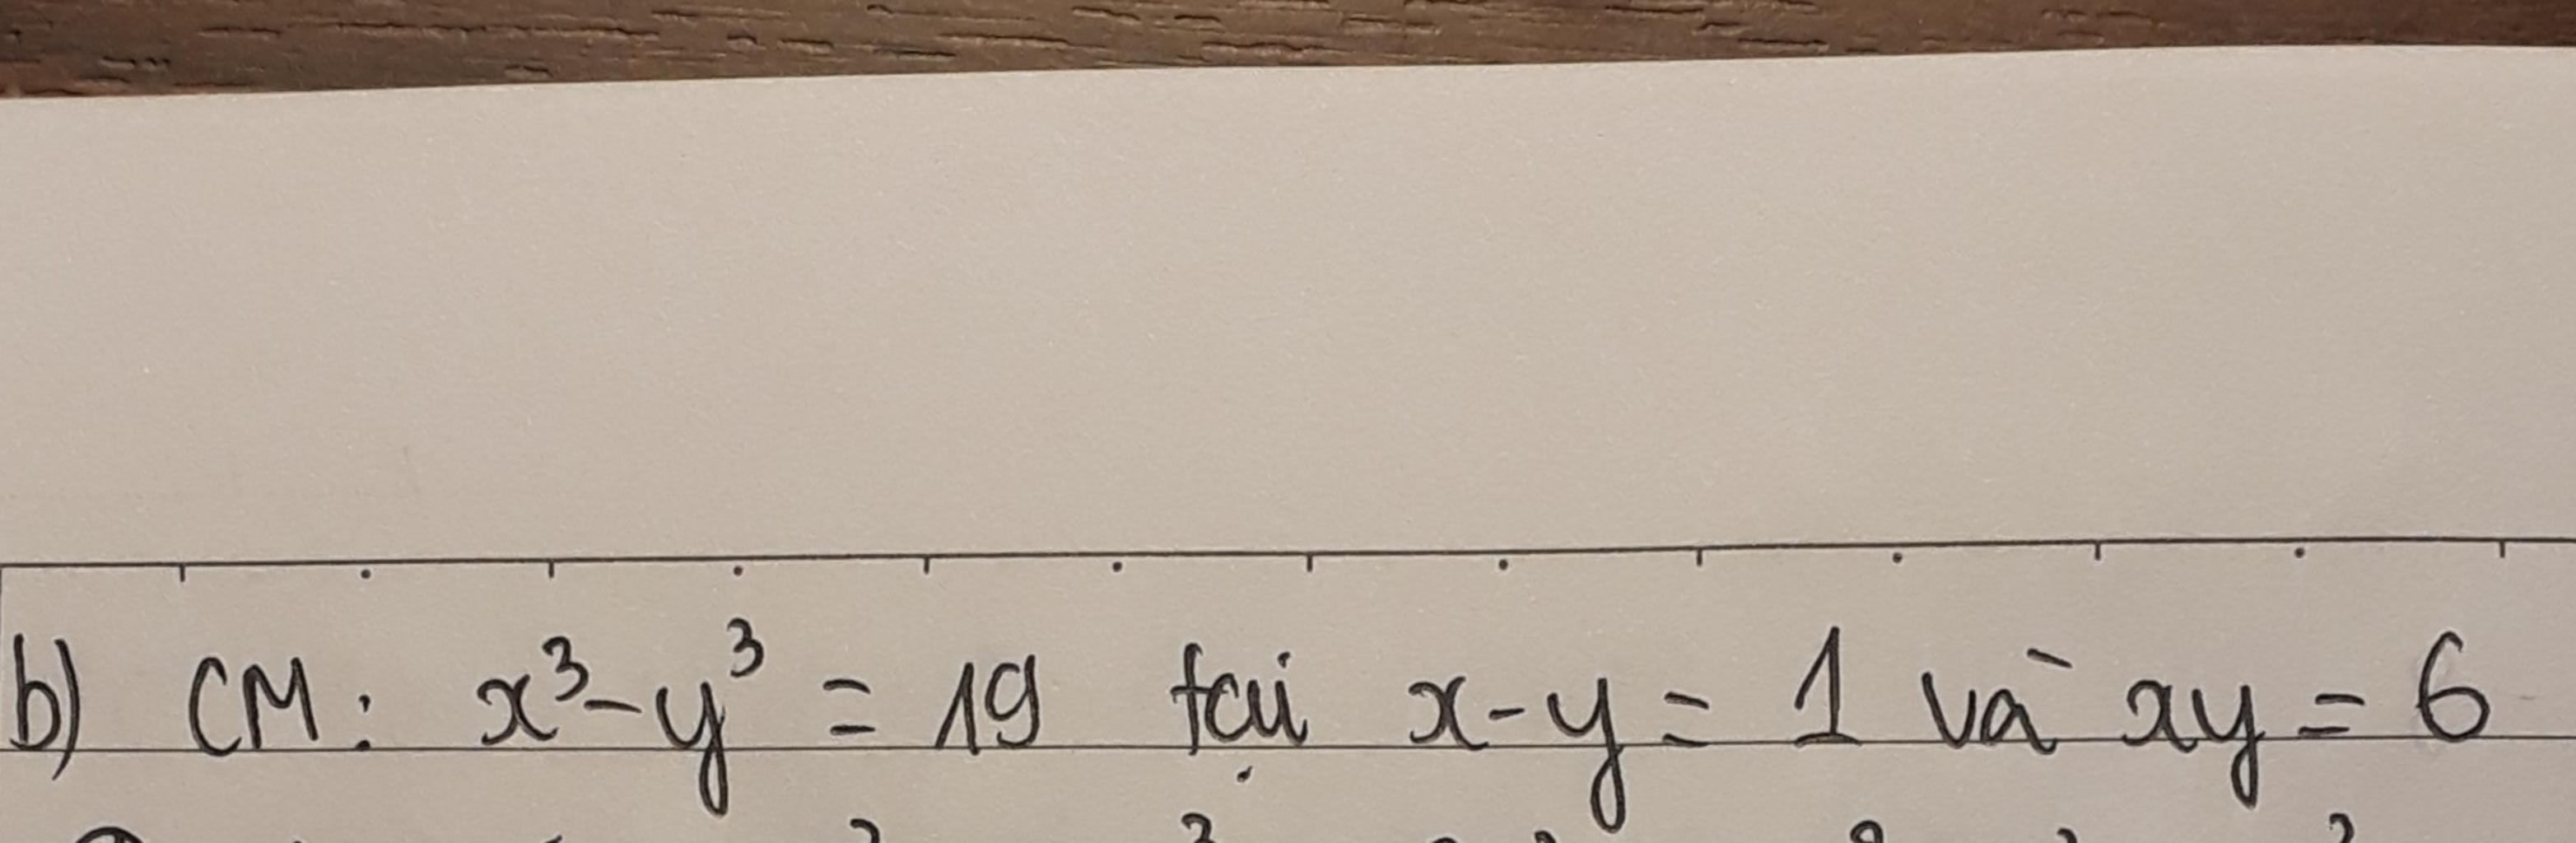 b) CM: x³-y³ = 19 tại x-y = 1 và xy = 6